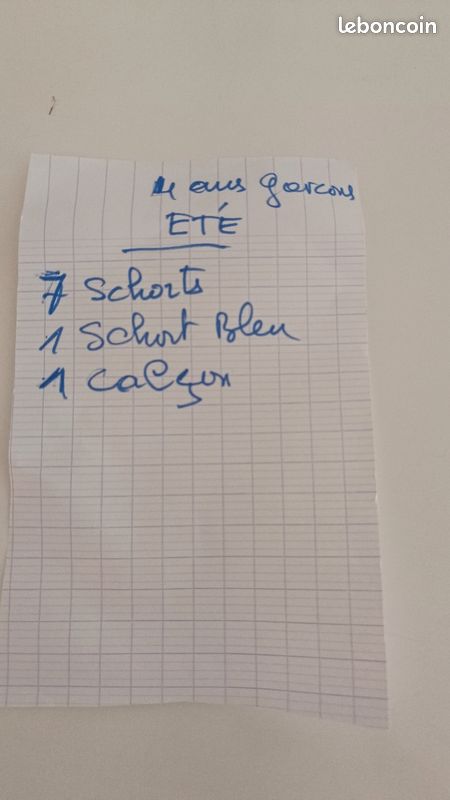 leboncoin
4 ans garcons
ETÉ
7 Schorts
1 Schort Bleu
1 calçon